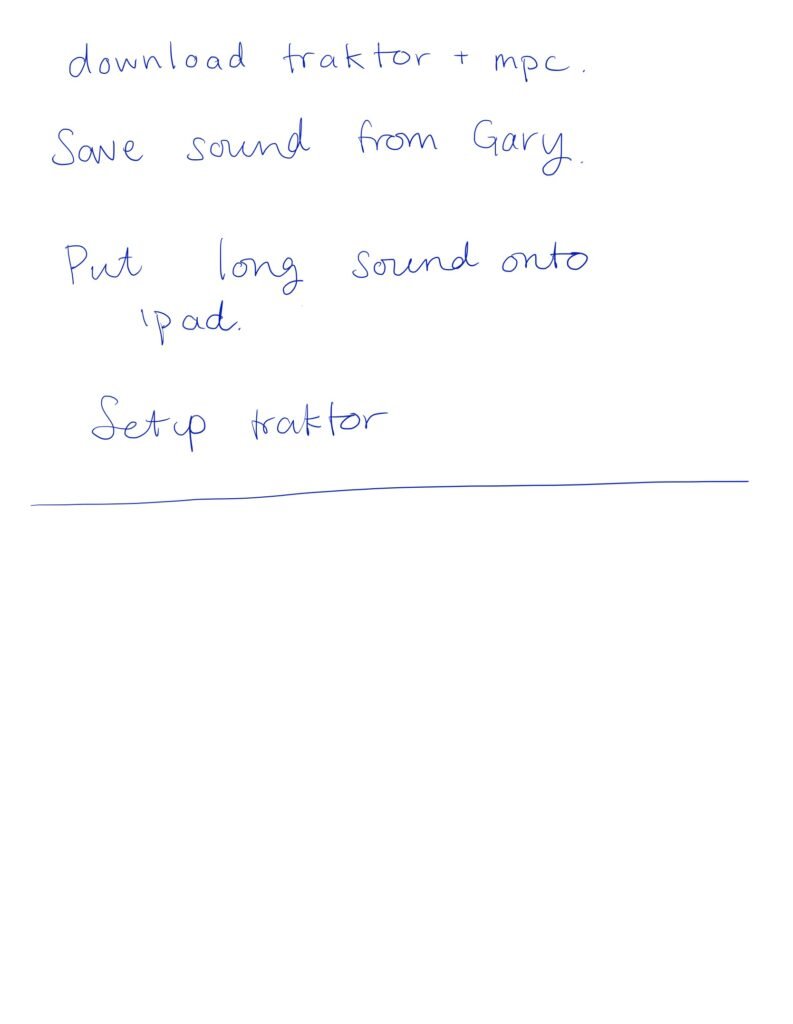 download traktor + mpc.
Save sound from Gary.
Put long sound onto
ipad.
Setup traktor